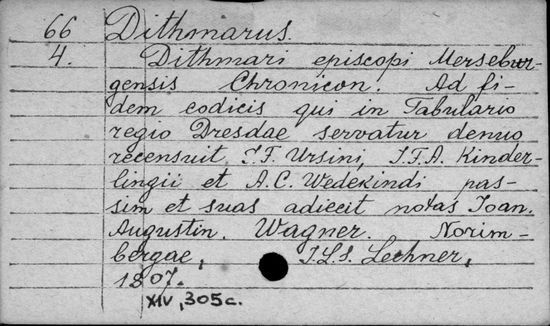 66 Dithmarus.
4. Dithmari episcopi Mersebur-
gensis Chronicon. Ad fi-
dem codicis qui in Tabulario
regio Dresdae servatur denuo
recensuit I.F. Ursini, I.F.A. Kinder-
lingii et A.C. Wedekindi pas-
sim et suas adiecit notas Ioan.
Augustin. Wagner. Norim-
bergae, I.L.S. Lechner,
1807.
XIV, 305 c.